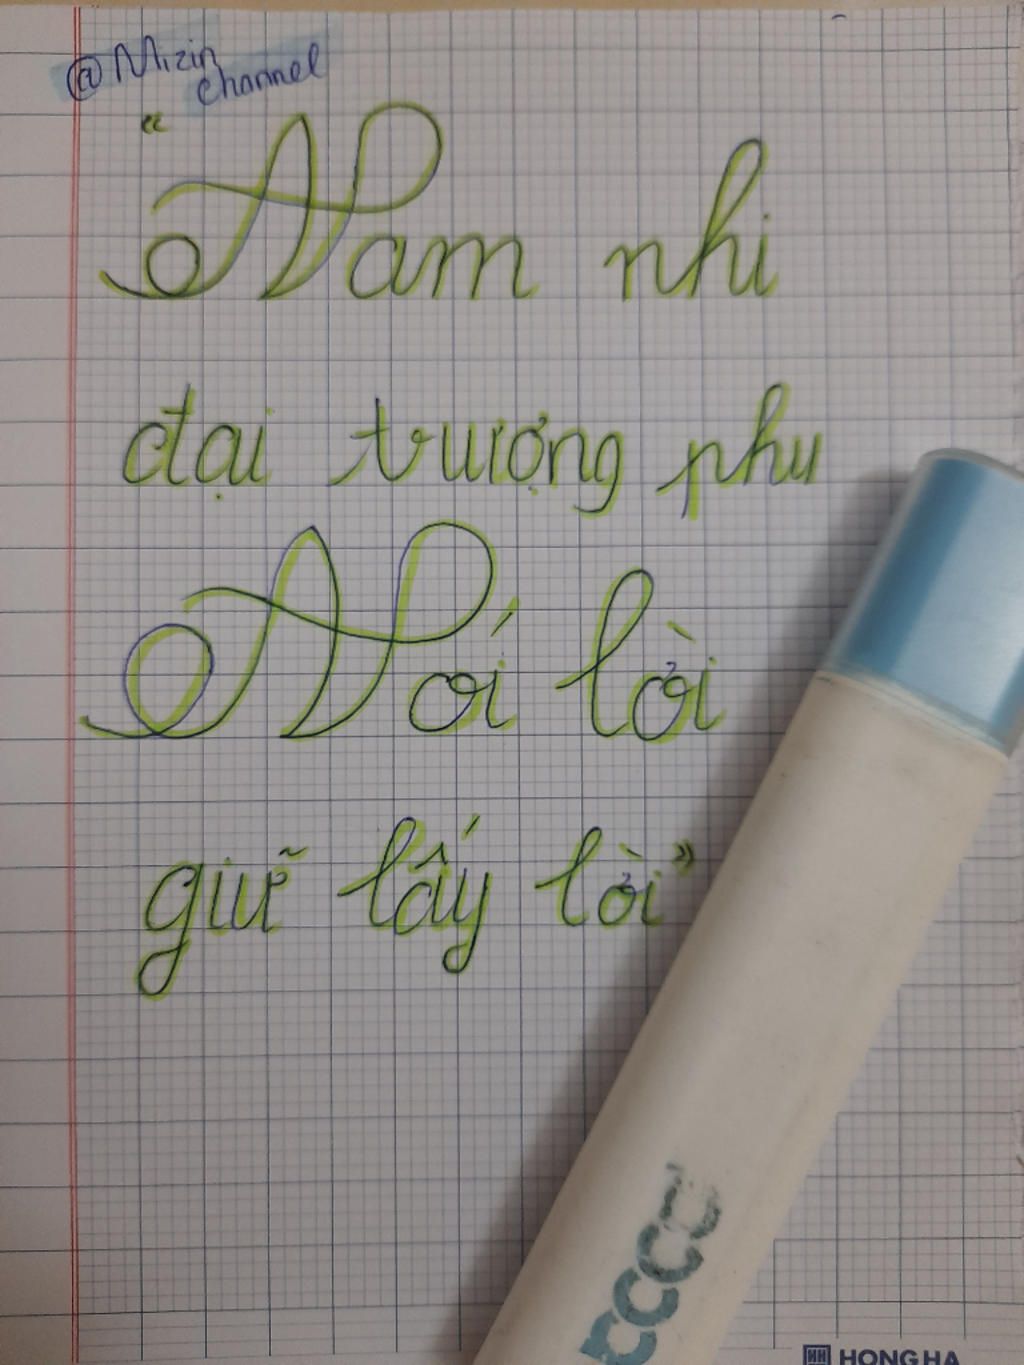 @Mizin
channel
“Nam nhi
đại trượng phu
Nói lời
giữ lấy lời”
CCCC
HONG HA